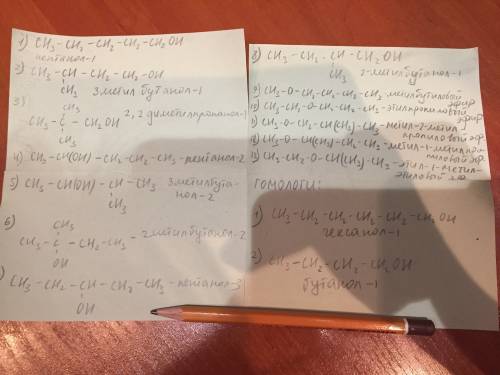 1) CH₃-CH₂-CH₂-CH₂-CH₂OH
пентанол-1
2) CH₃-CH-CH₂-CH₂-OH
CH₃ 3метил бутанол-1
3) CH₃
CH₃-C-CH₂OH 2,2 диметилпропанол-1
CH₃
4) CH₃-CH(OH)-CH₂-CH₂-CH₃-пентанол-2
5) CH₃-CH(OH)-CH-CH₃ 3метилбута-
CH₃ нол-2
6) CH₃
CH₃-C-CH₂-CH₃-2метилбутанол-2
OH
) CH₃-CH₂-CH-CH₂-CH₃-пентанол-3
OH
8) CH₃-CH₂-CH-CH₂OH
CH₃ 2-метилбутанол-1
9) CH₃-O-CH₂-CH₂-CH₂-CH₃ метилбутиловый
эфир
10) CH₃-CH₂-O-CH₂-CH₂-CH₃-этилпропиловый
эфир
CH₃-O-CH₂-CH(CH₃)-CH₃-метил-2-метил
пропиловый эфир
CH₃-O-CH(CH₃)-CH₂-CH₃-метил-1-метилпро-
пиловый эфир
CH₃-CH₂-O-CH(CH₃)-CH₃-этил-1-метил-
этиловый эф.
ГОМОЛОГИ:
1) CH₃-CH₂-CH₂-CH₂-CH₂-CH₂OH
гексанол-1
2) CH₃-CH₂-CH₂-CH₂OH
бутанол-1